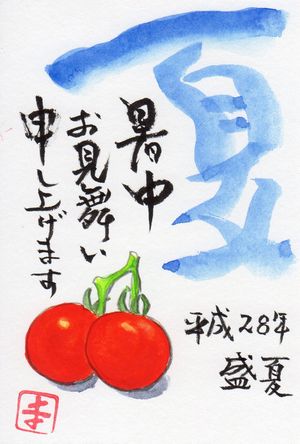 夏
暑中
お見舞い
申し上げます
平成28年
盛夏
ま